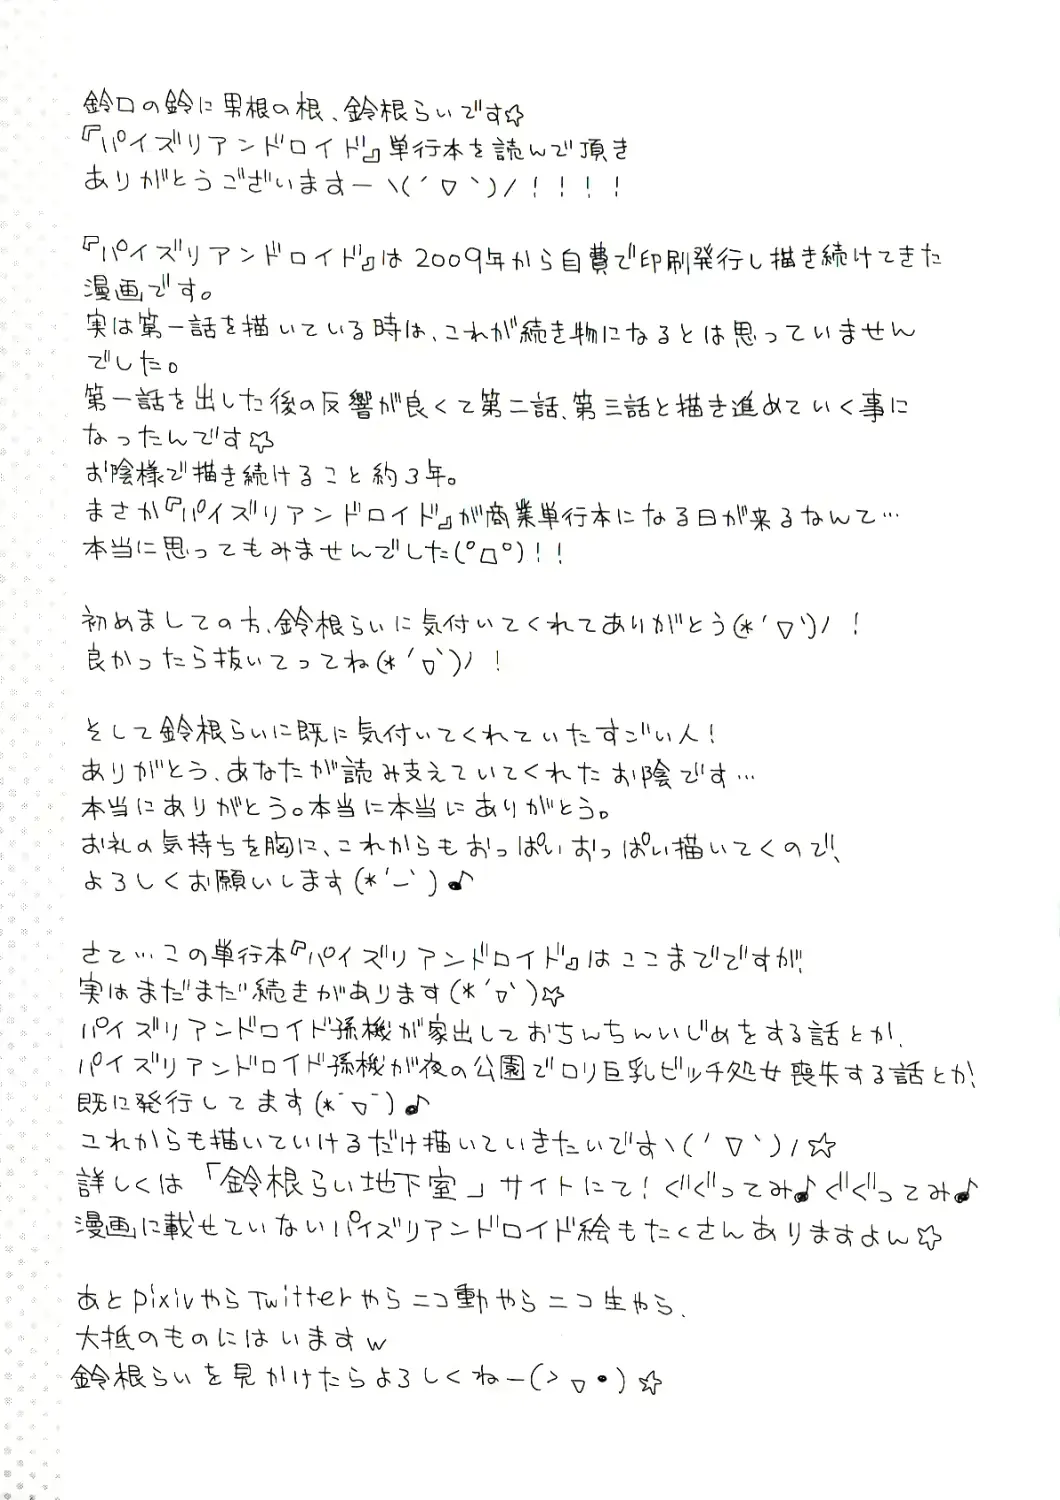 鈴口の鈴に男根の根、鈴根らいです☆
『パイズリアンドロイド』単行本を読んで頂き
ありがとうございますーヽ(´▽`)/！！！！
『パイズリアンドロイド』は2009年から自費で印刷発行し描き続けてきた
漫画です。
実は第一話を描いている時は、これが続き物になるとは思っていません
でした。
第一話を出した後の反響が良くて第二話、第三話と描き進めていく事に
なったんです☆
お陰様で描き続けること約3年。
まさか『パイズリアンドロイド』が商業単行本になる日が来るなんて…
本当に思ってもみませんでした(°□°)！！
初めましての方、鈴根らいに気付いてくれてありがとう(*´▽`)ﾉ！
良かったら抜いてってね(*´▽`)ﾉ！
そして鈴根らいに既に気付いてくれていたすごい人！
ありがとう、あなたが読み支えていてくれたお陰です…
本当にありがとう。本当に本当にありがとう。
お礼の気持ちを胸に、これからもおっぱいおっぱい描いてくので、
よろしくお願いします(*´ｰ`)♪
さて…この単行本『パイズリアンドロイド』はここまでですが、
実はまだまだ続きがあります(*´▽`)☆
パイズリアンドロイド孫機が家出しておちんちんいじめをする話とか、
パイズリアンドロイド孫機が夜の公園でロリ巨乳ビッチ処女喪失する話とか、
既に発行してます(*´▽`)♪
これからも描いていけるだけ描いていきたいですヽ(´▽`)/☆
詳しくは「鈴根らい地下室」サイトにて！ぐぐってみ♪ぐぐってみ♪
漫画に載せていないパイズリアンドロイド絵もたくさんありますよん☆
あとpixivやらTwitterやらニコ動やらニコ生やら、
大抵のものにはいますw
鈴根らいを見かけたらよろしくねー(>▽•)☆